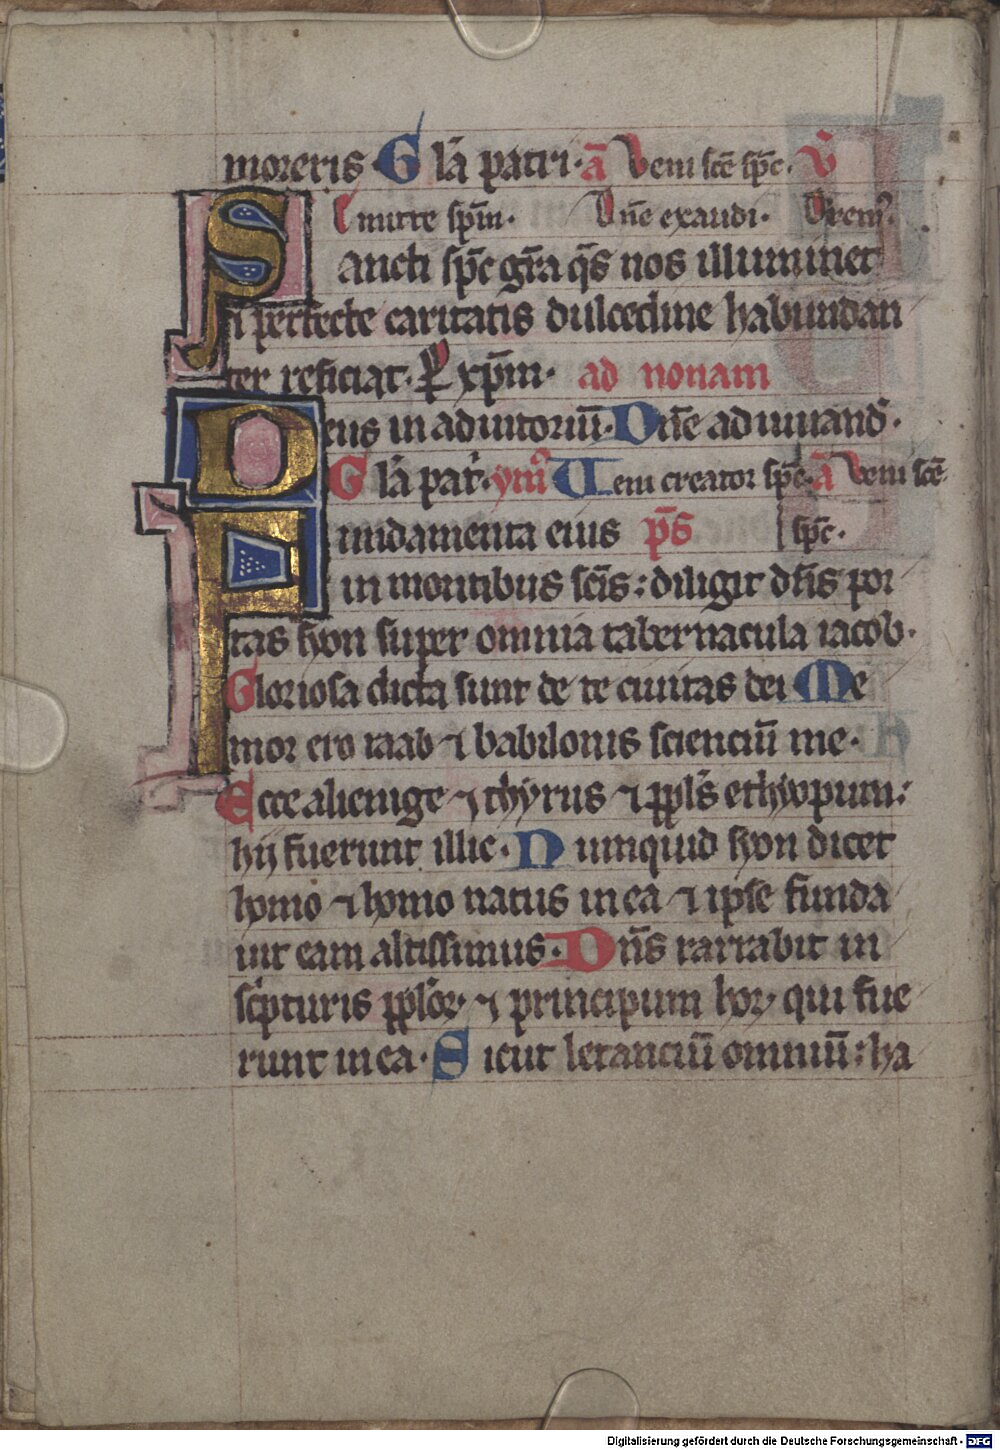 moreris. Gl̄a patri. ā Veni sc̄e sp̄c. v̄
Emitte sp̄m. Dn̄e exaudi. Oremꝰ.
Sancti sp̄c gr̄a q̄s nos illuminet
⁊ perfecte caritatis dulcedine habundan
ter reficiat. P̄ xp̄m. ad nonam
Deus in adiutoriū. Dn̄e ad iuuand̄.
Gl̄a pat̄. ymꝰ Veni creator sp̄c. ā Veni sc̄e
Fundamenta eius p̄s sp̄c.
in montibus sc̄is: diligit dn̄s por
tas syon super omnia tabernacula iacob.
Gloriosa dicta sunt de te ciuitas dei Me
mor ero raab ⁊ babilonis scienciū me.
Ecce alienige ⁊ thyrus ⁊ ppl̄s ethyopum:
hij fuerunt illic. Numquid syon dicet
homo ⁊ homo natus in ea ⁊ ipse funda
uit eam altissimus. Dn̄s narrabit in
sc̄pturis ppl̄oꝝ ⁊ principum hoꝝ qui fue
runt in ea. Sicut letanciū omniū: ha
Digitalisierung gefördert durch die Deutsche Forschungsgemeinschaft - DFG